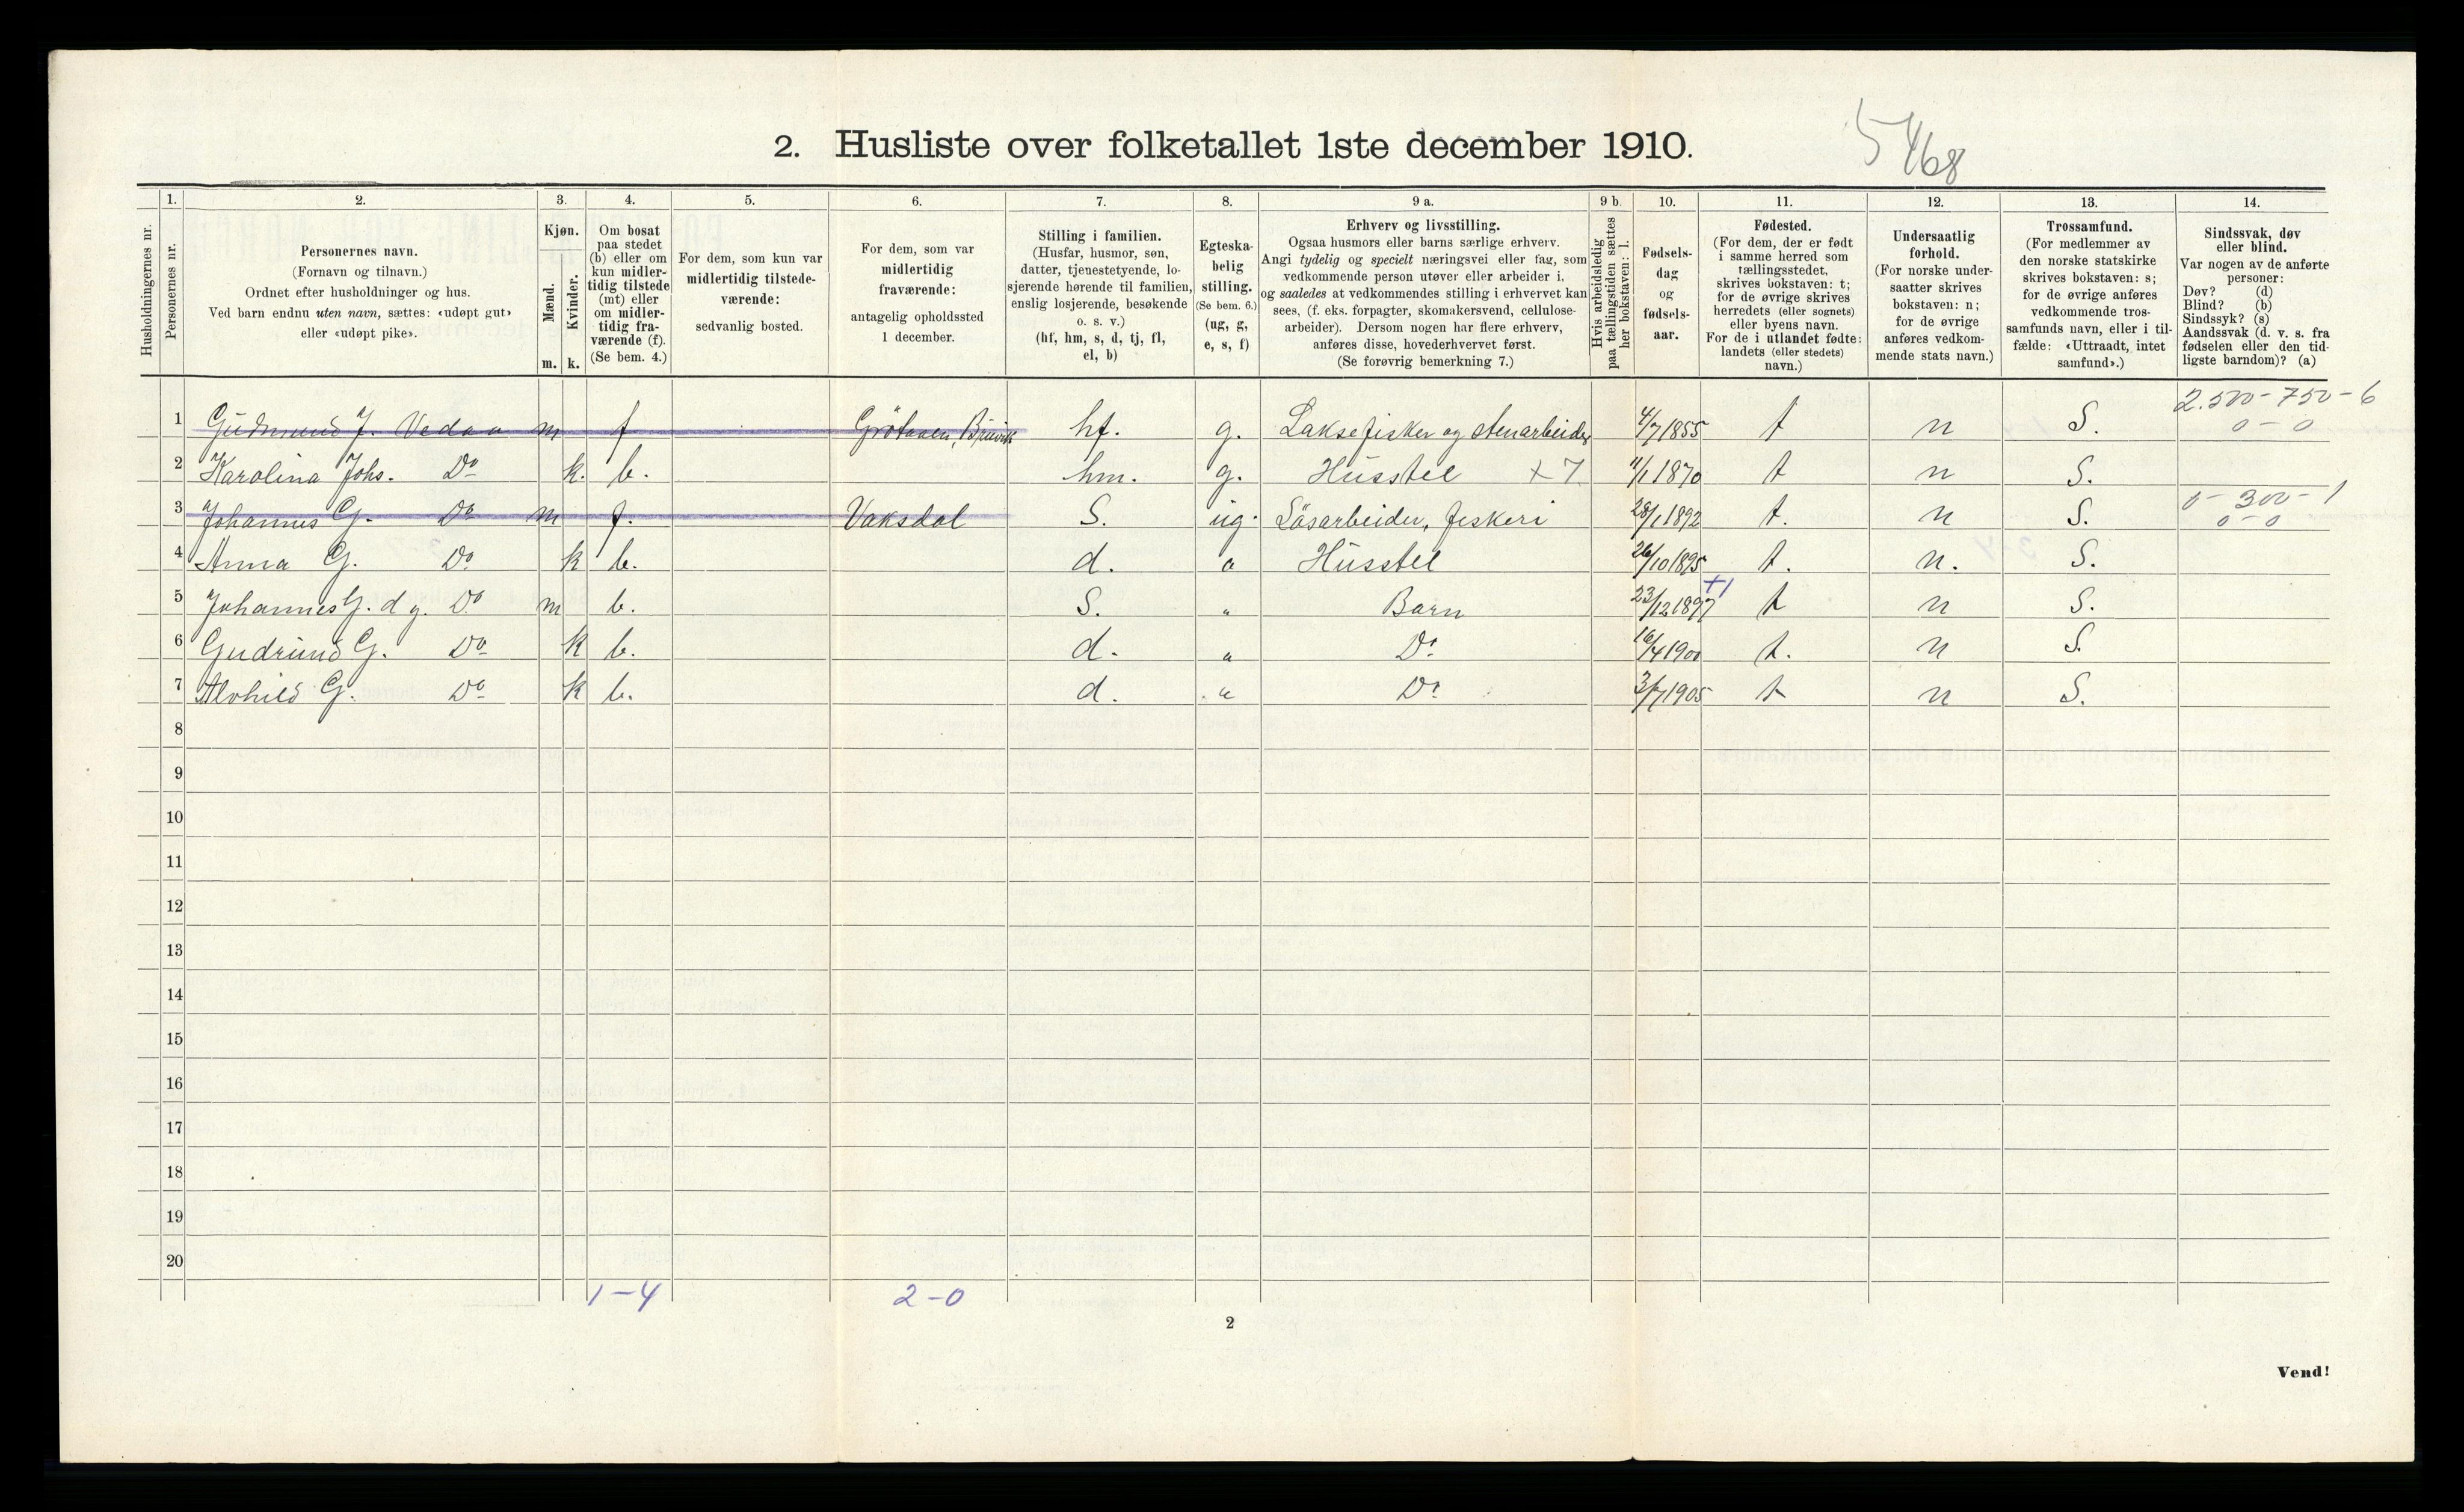 2. Husliste over folketallet 1ste december 1910.
5 468
Husholdningernes nr.
1. Personernes nr.
2. Personernes navn. (Fornavn og tilnavn.) Ordnet efter husholdninger og hus. Ved barn endnu uten navn, sættes: «udøpt gut» eller «udøpt pike».
3. Kjøn. Mænd. m. Kvinder. k.
4. Om bosat paa stedet (b) eller om kun midlertidig tilstede (mt) eller om midlertidig fraværende (f). (Se bem. 4.)
5. For dem, som kun var midlertidig tilstedeværende: sedvanlig bosted.
6. For dem, som var midlertidig fraværende: antagelig opholdssted 1 december.
7. Stilling i familien. (Husfar, husmor, søn, datter, tjenestetyende, losjerende hørende til familien, enslig losjerende, besøkende o. s. v.) (hf, hm, s, d, tj, fl, el, b)
8. Egteskabelig stilling. (Se bem. 6.) (ug, g, e, s, f)
9 a. Erhverv og livsstilling. Ogsaa husmors eller barns særlige erhverv. Angi tydelig og specielt næringsvei eller fag, som vedkommende person utøver eller arbeider i, og saaledes at vedkommendes stilling i erhvervet kan sees, (f. eks. forpagter, skomakersvend, cellulosearbeider). Dersom nogen har flere erhverv, anføres disse, hovederhvervet først. (Se forøvrig bemerkning 7.)
9 b. Hvis arbeidsledig paa tællingstiden sættes her bokstaven: l.
10. Fødselsdag og fødselsaar.
11. Fødested. (For dem, der er født i samme herred som tællingsstedet, skrives bokstaven: t; for de øvrige skrives herredets (eller sognets) eller byens navn. For de i utlandet fødte: landets (eller stedets) navn.)
12. Undersaatlig forhold. (For norske undersaatter skrives bokstaven: n; for de øvrige anføres vedkommende stats navn.)
13. Trossamfund. (For medlemmer av den norske statskirke skrives bokstaven: s; for de øvrige anføres vedkommende trossamfunds navn, eller i tilfælde: «Uttraadt, intet samfund».)
14. Sindssvak, døv eller blind. Var nogen av de anførte personer: Døv? (d) Blind? (b) Sindssyk? (s) Aandssvak (d. v. s. fra fødselen eller den tidligste barndom)? (a)
1 Gudmund J. Vedaa m f hf. g. Laksefisker og stenarbeider 4/7 1855 t n S. 2.500-750-6 0-0
2 Karolina Johs. Do k. b. hm. g. Husstel +7 11/1 1870 t n S.
3 Johannes G. Do m f. Vaksdal S. ug. Løsarbeider, fiskeri 28/1 1892 t. n S. 0-300-1 0-0
4 Anna G. Do k b. d. " Husstel 26/10 1895 t. n. S.
5 Johannes G. d y. Do m b. S. " Barn 23/12 1897 +1 t n S.
6 Gudrund G. Do k b. d. " Do 16/4 1900 t. n S.
7 Alvhild G. Do k b. d. " Do 3/7 1905 t n S.
8
9
10
11
12
13
14
15
16
17
18
19
20
1-4 2-0
2
Vend!